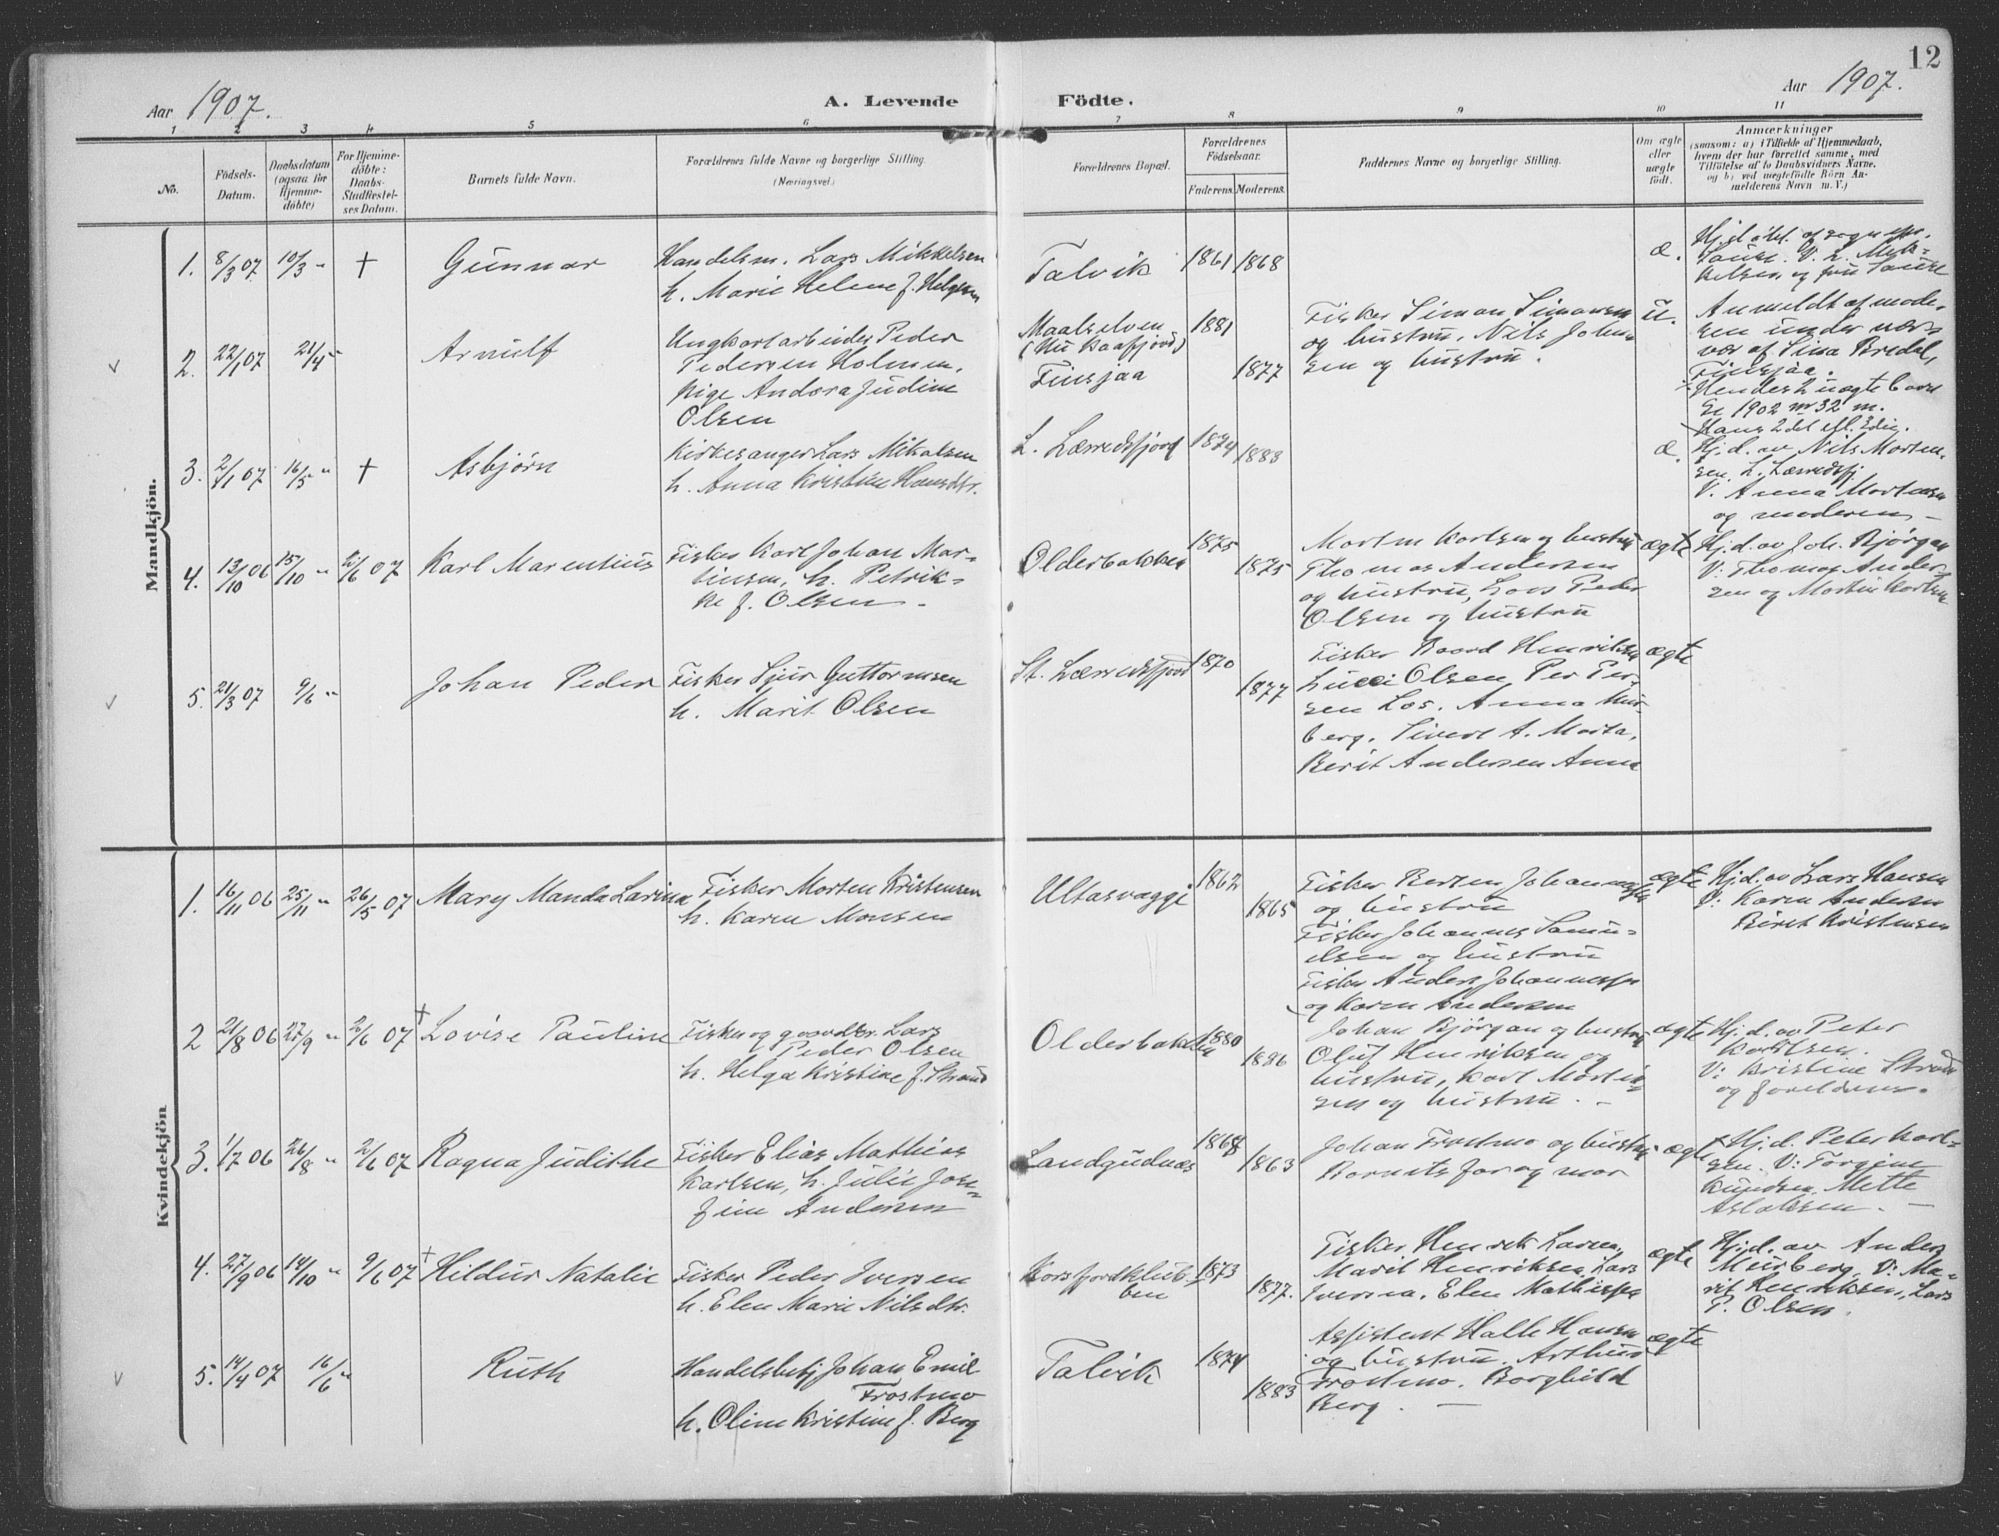 12
Aar 1907.
A. Levende Födte.
Aar 1907.
1 2 3 4 5 6 7 8 9 10 11
No.
Födsels-Datum.
Daabsdatum (ogsaa for Hjemme-döbte)
For Hjemme-döbte: Daabs-Stadfæstel-ses Datum.
Barnets fulde Navn.
Forældrenes fulde Navne og borgerlige Stilling.
(Næringsvei.)
Forældrenes Bopæl.
Forældrenes Födselsaar.
Faderens. Moderens.
Faddernes Navne og borgerlige Stilling.
Om ægte eller uægte födt.
Anmærkninger
(saasom: a) i Tilfælde af Hjemmedaab,
hvem der har forrettet samme, med
Tilföielse af to Daabsvidners Navne.
og b) ved uægtefödte Börn An-
melderens Navn m. V.)
Mandkjön.
1. 8/3 07 10/3 " + Gunnar
Handelsm. Lars Mikkelsen
h. Marie Helene f. Helgesen
Talvik 1861 1868
æ.
2. 22/1 07 21/4 " Arnulf
Ungkarl arbeider Peder
Pedersen Holmen.
Pige Andora Judine
Olsen
Maalselven
(nu Kaafjord)
Finsjaa
1881 1877
Fisker Simon Simonsen
og hustru, Nils John-
sen og hustru.
u.
Anmeldt af mode-
ren under nær-
vær af Sina Bredal,
Finsjaa.
Hendes 2 uægte barn
se 1902 nr 32 m.
Hans 2 det efl. Edig.
3. 2/1 07 16/5 " + Asbjørn
Kirkesanger Lars Mikalsen
h. Anna Kristine Hansdtr.
L. Lærredsfjord 1874 1883
æ.
Hj. d. av Nils Morten-
sen, L. Lærredsfj.
V. Anna Mortensen
og moderen
4. 13/10 06 15/10 " 2/6 07 Karl Marentius
Fisker Karl Johan Mar-
tinsen, h. Petrik-
ke f. Olsen
Olderbakken 1875 1875
Morten Karlsen og hustru
Thomas Andersen
og hustru, Lars Peder
Olsen og hustru
ægte
Hj. d. av Joh. Bjørgan
V: Thomas Ander-
sen og Morten Karlsen
5. 21/3 07 9/6 " Johan Peder
Fisker Sjur Guttormsen
h. Marit Olsen
St. Lærredsfjord 1870 1877
Fisker Baard Henriksen
Olsen, Per Per-
sen Las. Anna Mur-
berg. Sivert A. Marta,
Berit Andersen Anna
ægte
Kvindekjön
1. 16/11 06 25/11 " 26/5 07 Mary Manda Larina
Fisker Morten Kristensen
h. Karen Monsen
Ultasvaggi 1862 1865
Fisker Berten Johannessen
og hustru
Fisker Johannes Samu-
elsen og hustru
Fisker Anders Johannessen
og Karen Andersen
ægte
Hj. d. av Lars Hansen
V: Karen Andersen
Biret Kristensen
2 21/8 06 27/9 " 2/6 07 + Lovise Pauline
Fisker og gaardbr. Lars
Peder Olsen
h. Helga Kristine f. Strand
Olderbakken 1880 1886
Johan Bjørgan og hustru
Oluf Henriksen og
hustru, Karl Martin-
sen og hustru.
ægte
Hj. d. av Peter
Karlsen.
V: Kristine Strand
og foreldrene.
3. 1/7 06 26/8 " 2/6 07 Ragna Judithe
Fisker Elias Mathias
Karlsen, h. Julie Jose-
fine Andersen
Landgudnas 1868 1863
Johan Frostmo og hustru
Barnets far og mor
ægte
Hj. d. Peter Karl-
sen. V: Torgine
Knudsen, Mette
Aslaksen.
4. 27/9 06 14/10 " 9/6 07 + Hildur Natalie
Fisker Peder Iversen
h. Elen Marie Nilsdtr.
Korsfjordklub-
ben
1873 1877.
Fisker Henrik Larsen,
Marit Henriksen, Lars
Iversen, Elen Mathisen
ægte
Hj. d. av Anders
Murberg. V: Ma-
rit Henriksen, Lars
P. Olsen.
5. 14/4 07 16/6 " Ruth
Handelsbetj. Johan Emil
Frostmo
h. Oline Kristine f. Berg
Talvik 1874 1883
Assistent Halle Hansen
og hustru. Arthur
Frostmo. Borghild
Berg.
ægte